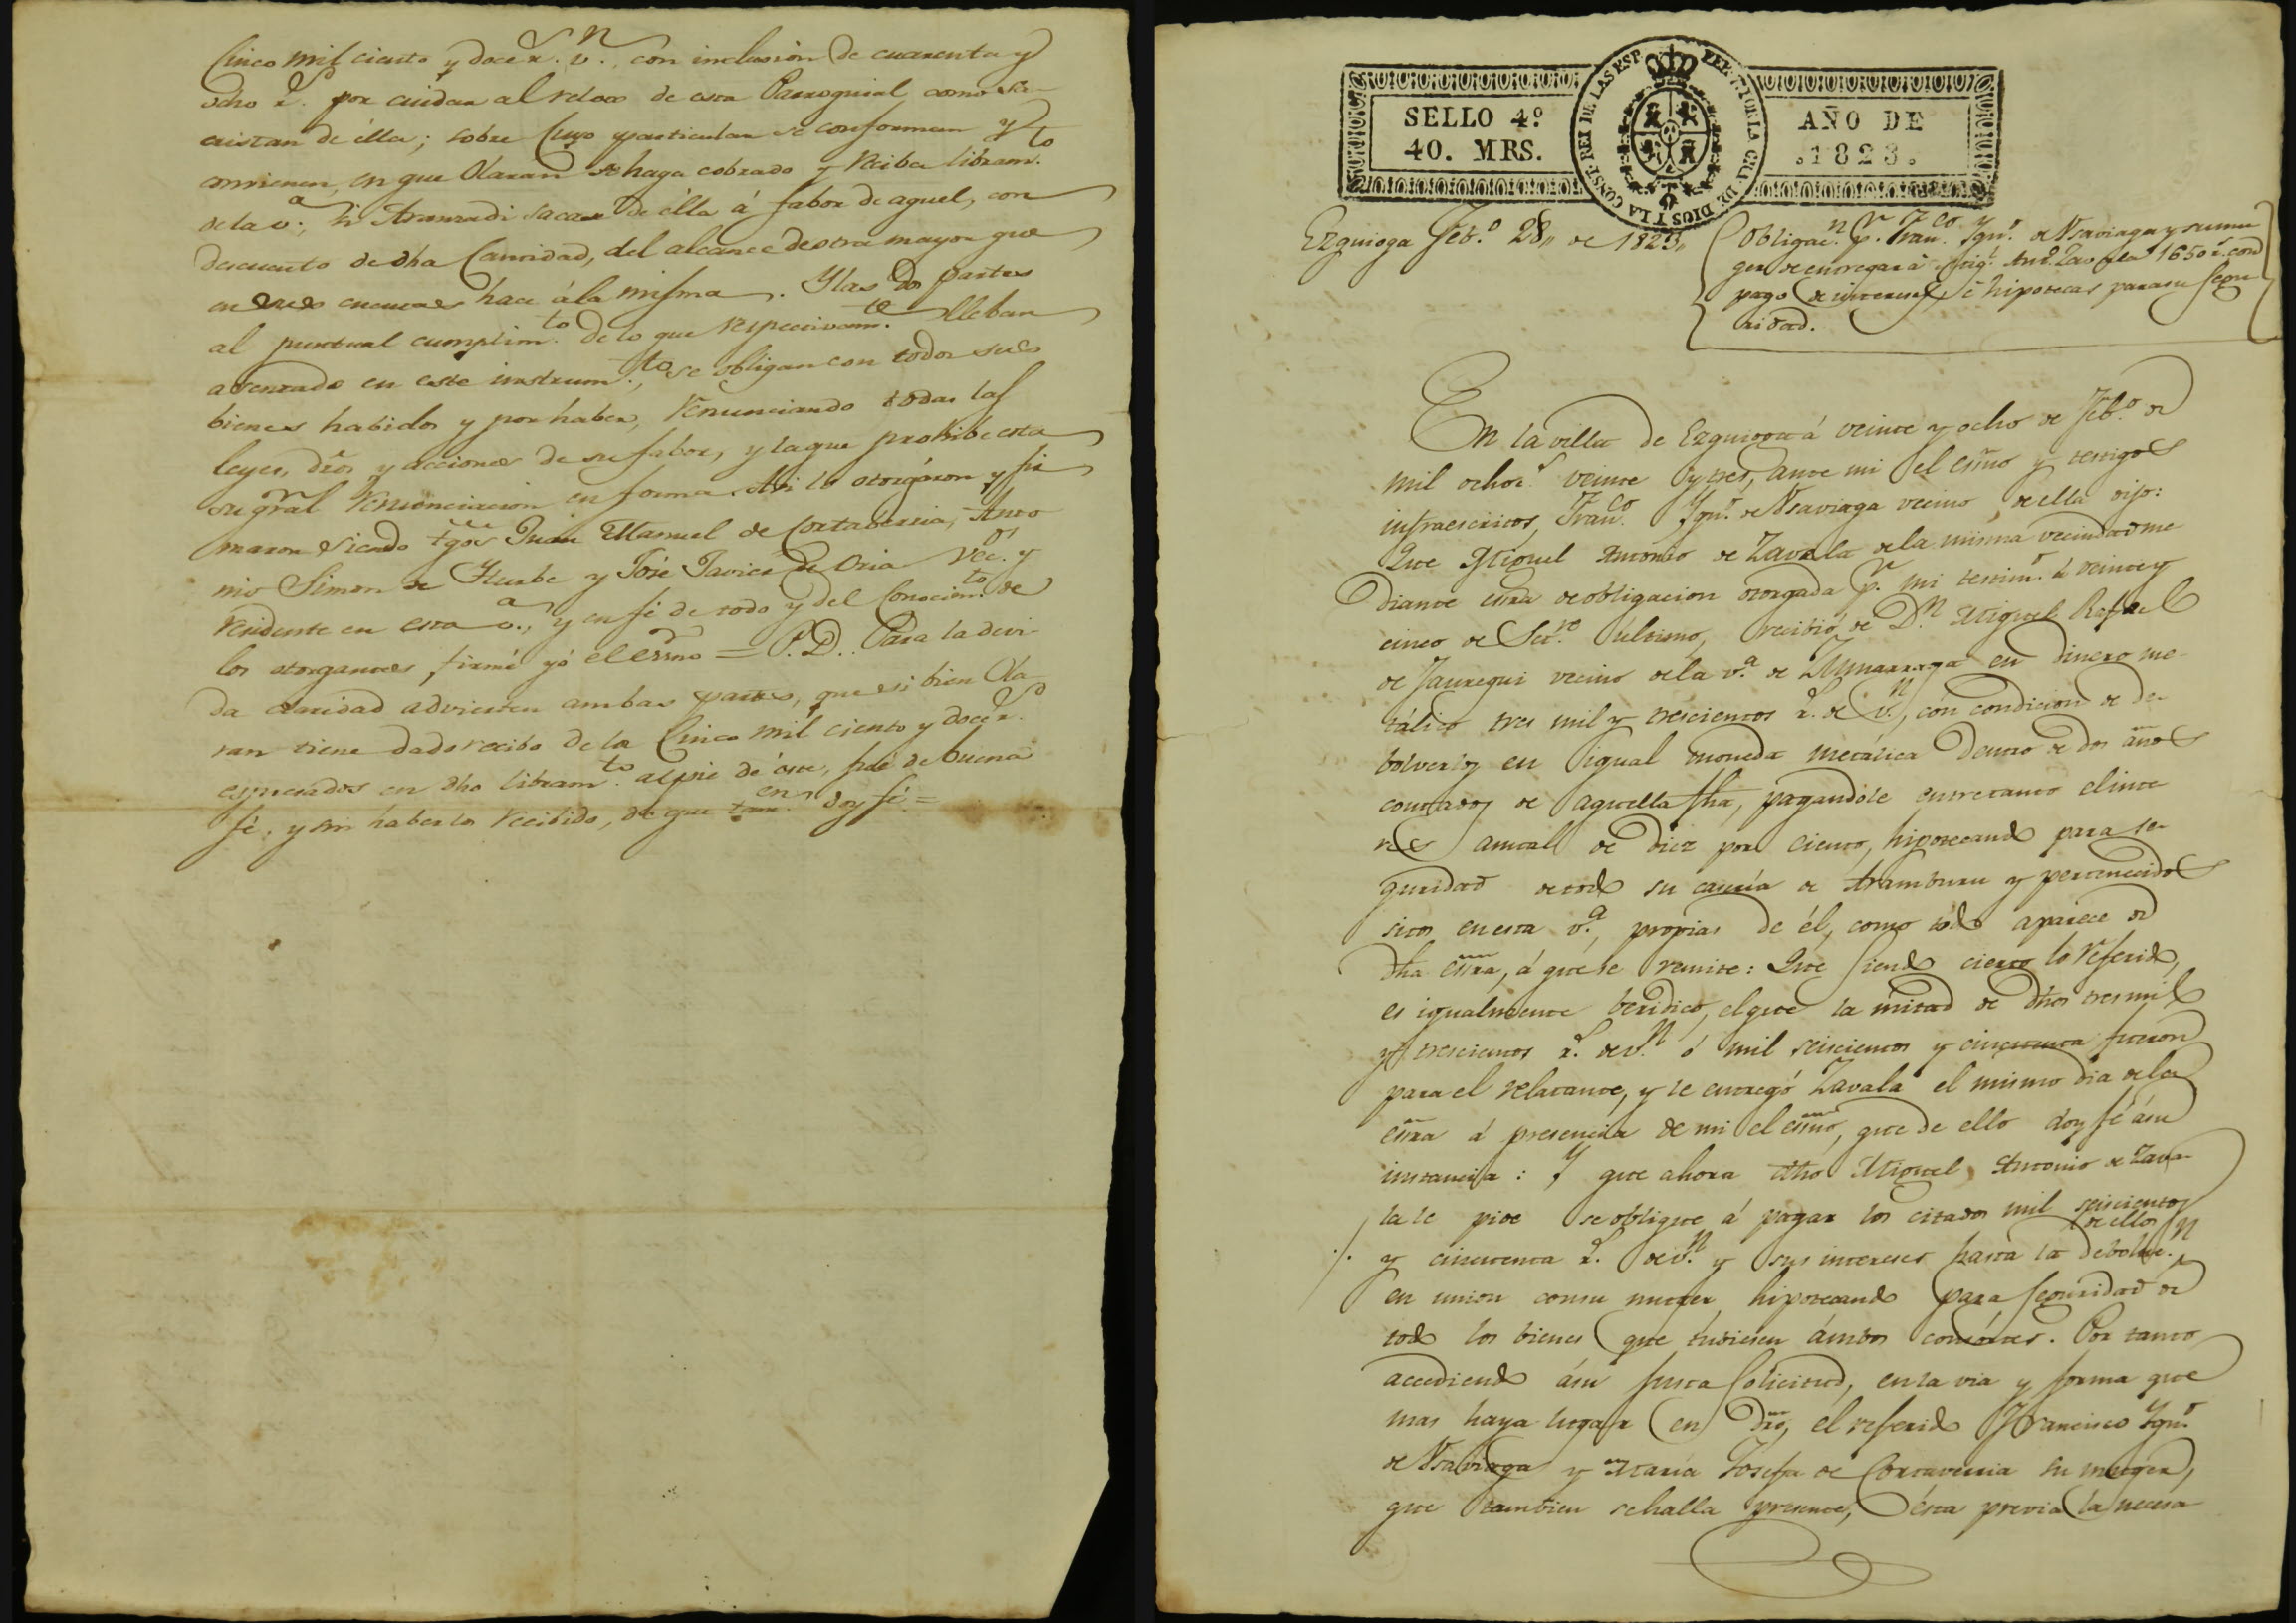 Cinco mil ciento y doce r.ˢ v.ⁿ, con inclusion de cuarenta y
ocho r.ˢ por cuidar al relox de esta Parroquial como sa-
cristan de élla; sobre cuyo particular se conforman y
convienen, en que Olaran se haga cobrado y reciba libram.ᵗᵒ
de la v.ᵃ, si Aranzadi sacare de élla á fabor de aquel, con
descuento de dha Cantidad, del alcance de otra mayor que
en sus cuentas hace á la misma. Y las dos partes
al puntual cumplim.ᵗᵒ de lo que respectivam.ᵗᵉ lleban
asentado en este instrum.ᵗᵒ, se obligan con todos sus
bienes habidos y por haber, renunciando todas las
leyes, dros y acciones de su fabor, y la que prohibe esta
su gral renunciacion en forma. Asi lo otorgáron y fir
maron siendo tgos Juan Manuel de Cortaberria, Anto
nio Simon de Yturbe y José Javier de Oria vec.ᵒˢ y
residente en esta v.ᵃ, y en fé de todo y del Conocim.ᵗᵒ de
los otorgantes firmé yó el Essno = P.D. Para la devi-
da claridad advierten ambas partes, que si bien Ola-
ran tiene dado recibo de los Cinco mil ciento y doce r.ˢ
espresados en dho libram.ᵗᵒ al pie de éste, fue de buena
fé, y sin haberlos recibido, de que en doy fé =
SELLO 4º
40. MRS.
AÑO DE
.1823.
Ezquioga Feb.º 28,, de 1823,,
Obligac.ⁿ p.ʳ Fran.ᶜᵒ Ygn.º de Usaviaga y su mu
ger de entregar á Mig.ˡ Ant.º Zavala 1650 r.ˢ con
pago de intereses, é hipotecas para su segu
ridad.
En la villa de Ezquioga á veinte y ocho de Feb.º de
mil ochoc.ˢ veinte y tres, ante mi el essno y testigos
infraescritos, Fran.ᶜᵒ Ygn.º de Usaviaga vecino de ella dijo:
Que Miguel Antonio de Zavala de la misma vecindad me
diante essra de obligacion otorgada p.ʳ mi testim.º á veinte y
cinco de Set.ʳᵉ último, recibió de D.ⁿ Miguel Rafael
de Jauregui vecino de la v.ᵃ de Zumarraga en dinero me-
tálico tres mil y trescientos r.ˢ de v.ⁿ, con condicion de de-
bolverlos en igual moneda metálica dentro de dos años
contados de aquella fha, pagandóle entretanto el inte
res anual de diez por ciento, hipotecando para se-
guridad de todo su casería de Aramburu y pertenecidos
sitos en esta v.ᵃ, propias de él, como todo aparece de
dha essra, á que se remite: Que siendo cierto lo referido,
es igualmente beridico, el que la mitad de dhos tres mil
y trescientos r.ˢ de v.ⁿ ó mil seiscientos y cincuenta fueron
para el relatante, y le entregó Zavala el mismo dia de la
essra á presencia de mi el essno, que de ello doy fé á su
instancia: Y que ahora dho Miguel Antonio de Zava-
la le pide se obligue á pagar los citados mil seiscientos
y cincuenta r.ˢ de v.ⁿ y sus intereses hasta la deboluc.ⁿ de ellos
en union con su muger hipotecando para seguridad de
todo los bienes que tubiesen ámbos consórtes. Por tanto,
accediendo á su justa solicitud, en la via y forma que
mas haya lugar en dro, él referido Francisco Ygn.º
de Usaviaga y Maria Josefa de Cortaverria su muger,
que tambien se halla presente, ésta previa la necesa